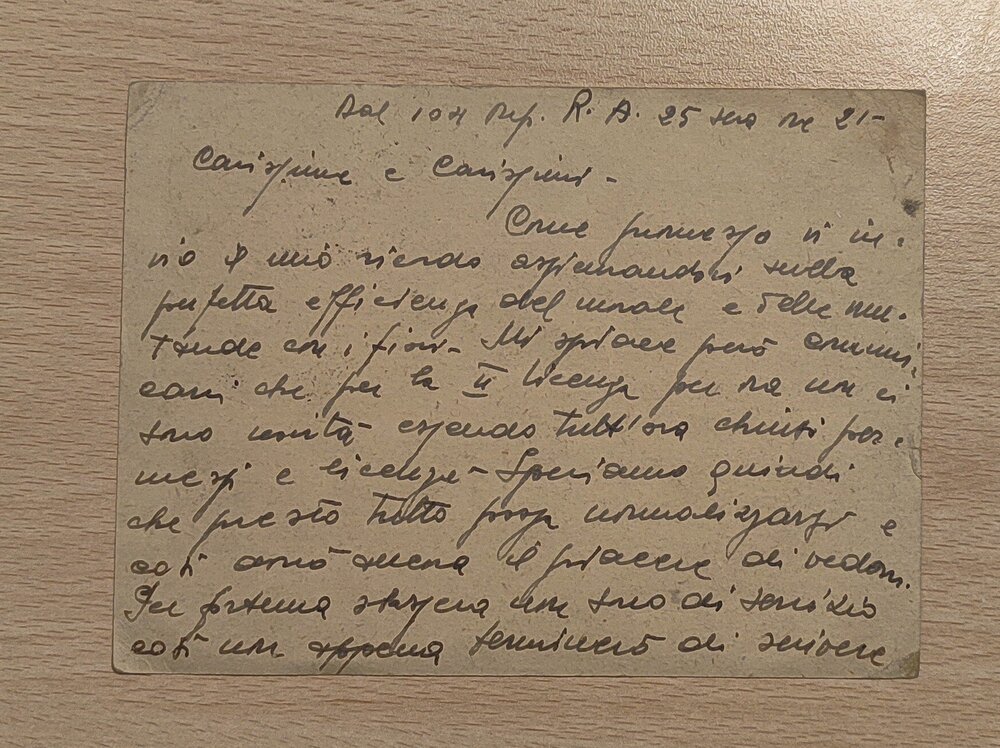 Dal 104 Rep. R. A. 25 sera ore 21-
Carissime e Carissimi -
Come promesso vi in-
vio il mio ricordo assicurandovi sulla
perfetta efficienza del morale e delle mu-
tande con i fiori - Mi spiace però comuni-
carvi che per la II licenza per ora non ci
sono novità essendo tutt'ora chiusi per-
messi e licenze - Speriamo quindi
che presto tutto possa normalizzarsi e
così avrò ancora il piacere di vedervi.
Per fortuna stasera non sono di servizio
così non appena terminerò di scrivere